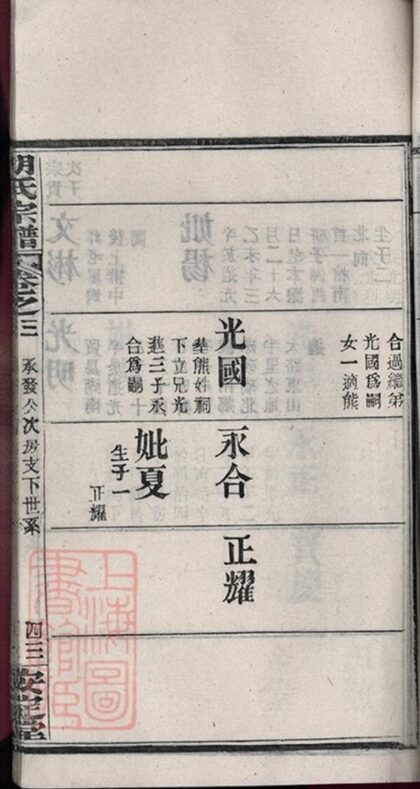 合過繼弟
光國爲嗣
女一適熊
光國
塟熊姓祠
下立兄光
進三子永
合爲嗣
永合
妣夏
生子一
正耀
正耀
胡氏宗譜
卷之三
承發公次房支下世系
四三
安定堂
上海圖
書館藏